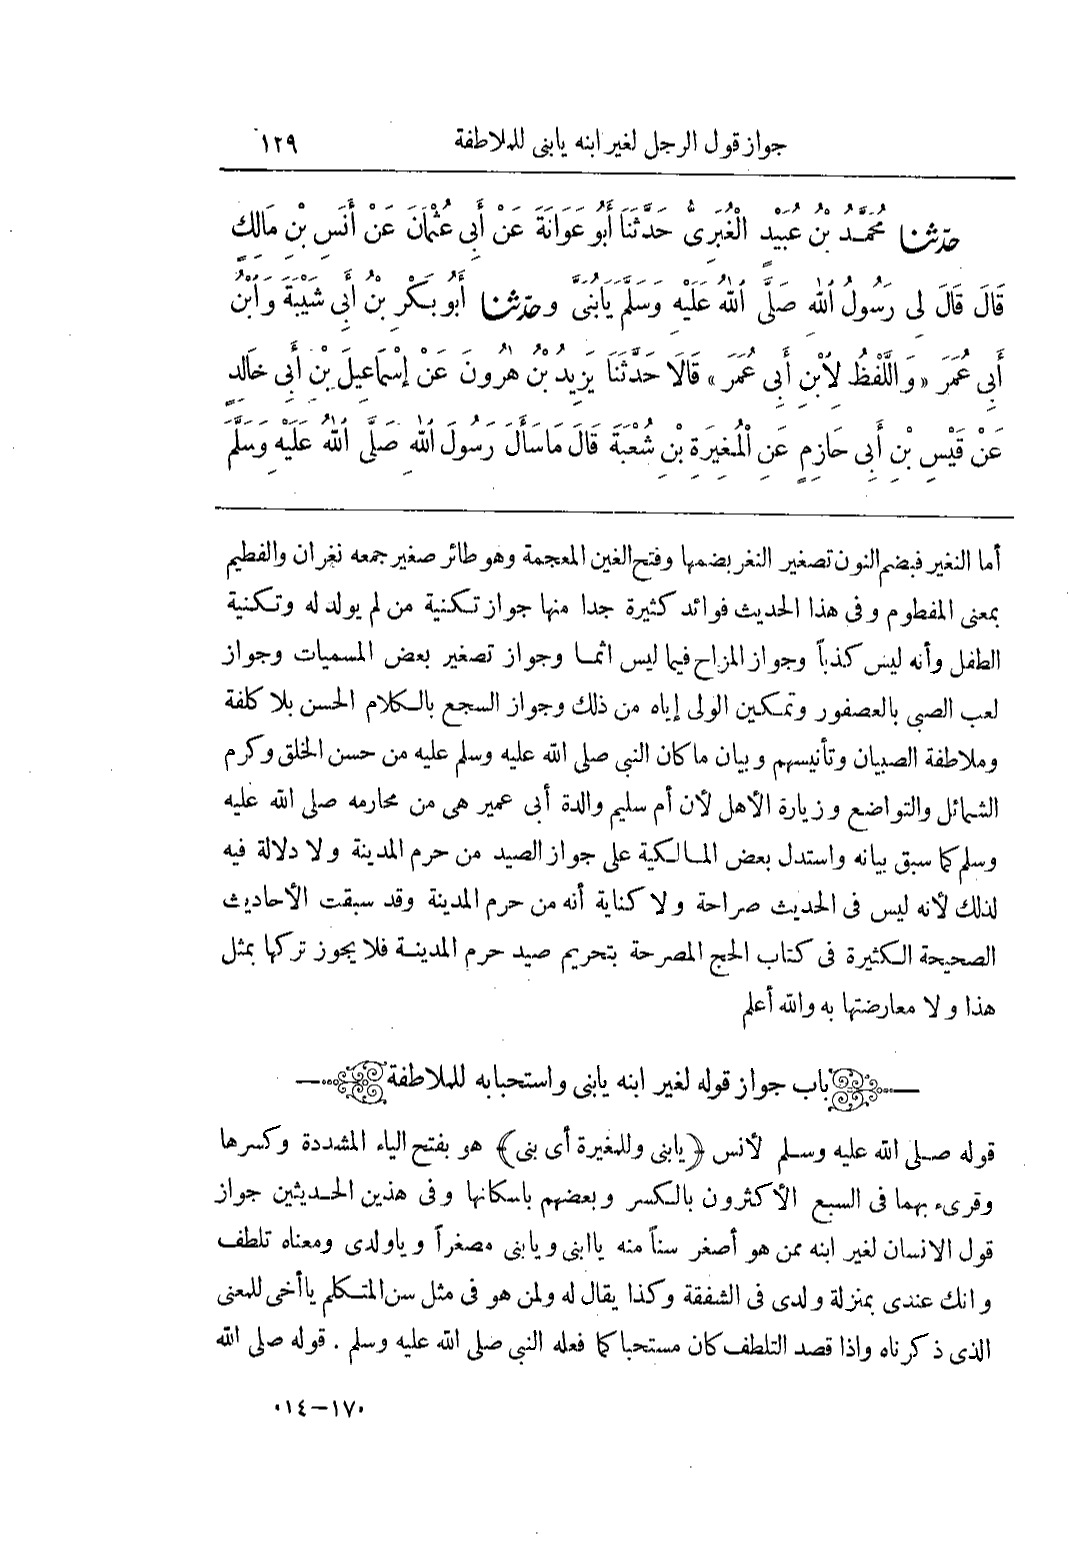 جواز قول الرجل لغير ابنه يابنى للملاطفة
١٢٩
حدّثنا مُحَمَّدُ بْنُ عُبَيْدٍ الْغُبَرِىُّ حَدَّثَنَا أَبُو عَوَانَةَ عَنْ أَبِى عُثْمَانَ عَنْ أَنَسِ بْنِ مَالِكٍ
قَالَ قَالَ لِى رَسُولُ اللهِ صَلَّى اللهُ عَلَيْهِ وَسَلَّمَ يَابُنَىَّ وحدّثنا أَبُو بَكْرِ بْنُ أَبِى شَيْبَةَ وَابْنُ
أَبِى عُمَرَ «وَاللَّفْظُ لِابْنِ أَبِى عُمَرَ» قَالَا حَدَّثَنَا يَزِيدُ بْنُ هٰرُونَ عَنْ إِسْمَاعِيلَ بْنِ أَبِى خَالِدٍ
عَنْ قَيْسِ بْنِ أَبِى حَازِمٍ عَنِ الْمُغِيرَةِ بْنِ شُعْبَةَ قَالَ مَاسَأَلَ رَسُولَ اللهِ صَلَّى اللهُ عَلَيْهِ وَسَلَّمَ
أما النغير فبضم النون تصغير النغر بضمها وفتح الغين المعجمة وهو طائر صغير جمعه نغران والفطيم
بمعنى المفطوم وفى هذا الحديث فوائد كثيرة جدا منها جواز تكنية من لم يولد له وتكنية
الطفل وأنه ليس كذباً وجواز المزاح فيما ليس اثما وجواز تصغير بعض المسميات وجواز
لعب الصبى بالعصفور وتمكين الولى إياه من ذلك وجواز السجع بالكلام الحسن بلا كلفة
وملاطفة الصبيان وتأنيسهم وبيان ماكان النبى صلى الله عليه وسلم عليه من حسن الخلق وكرم
الشمائل والتواضع وزيارة الأهل لأن أم سليم والدة أبى عمير هى من محارمه صلى الله عليه
وسلم كما سبق بيانه واستدل بعض المالكية على جواز الصيد من حرم المدينة ولا دلالة فيه
لذلك لأنه ليس فى الحديث صراحة ولا كناية أنه من حرم المدينة وقد سبقت الأحاديث
الصحيحة الكثيرة فى كتاب الحج المصرحة بتحريم صيد حرم المدينة فلا يجوز تركها بمثل
هذا ولا معارضتها به والله أعلم
باب جواز قوله لغير ابنه يابنى واستحبابه للملاطفة
قوله صلى الله عليه وسلم لأنس ﴿يابنى وللمغيرة أى بنى﴾ هو بفتح الياء المشددة وكسرها
وقرىء بهما فى السبع الأكثرون بالكسر وبعضهم باسكانها وفى هذين الحديثين جواز
قول الانسان لغير ابنه ممن هو أصغر سناً منه ياابنى ويابنى مصغراً وياولدى ومعناه تلطف
وانك عندى بمنزلة ولدى فى الشفقة وكذا يقال له ولمن هو فى مثل سن المتكلم ياأخى للمعنى
الذى ذكرناه واذا قصد التلطف كان مستحبا كما فعله النبى صلى الله عليه وسلم . قوله صلى الله
٠١٤–١٧٠